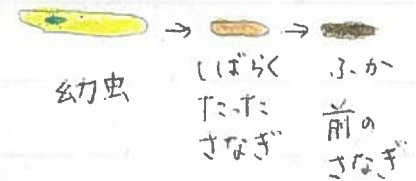 幼虫
しばらく
たった
さなぎ
ふか
前の
さなぎ